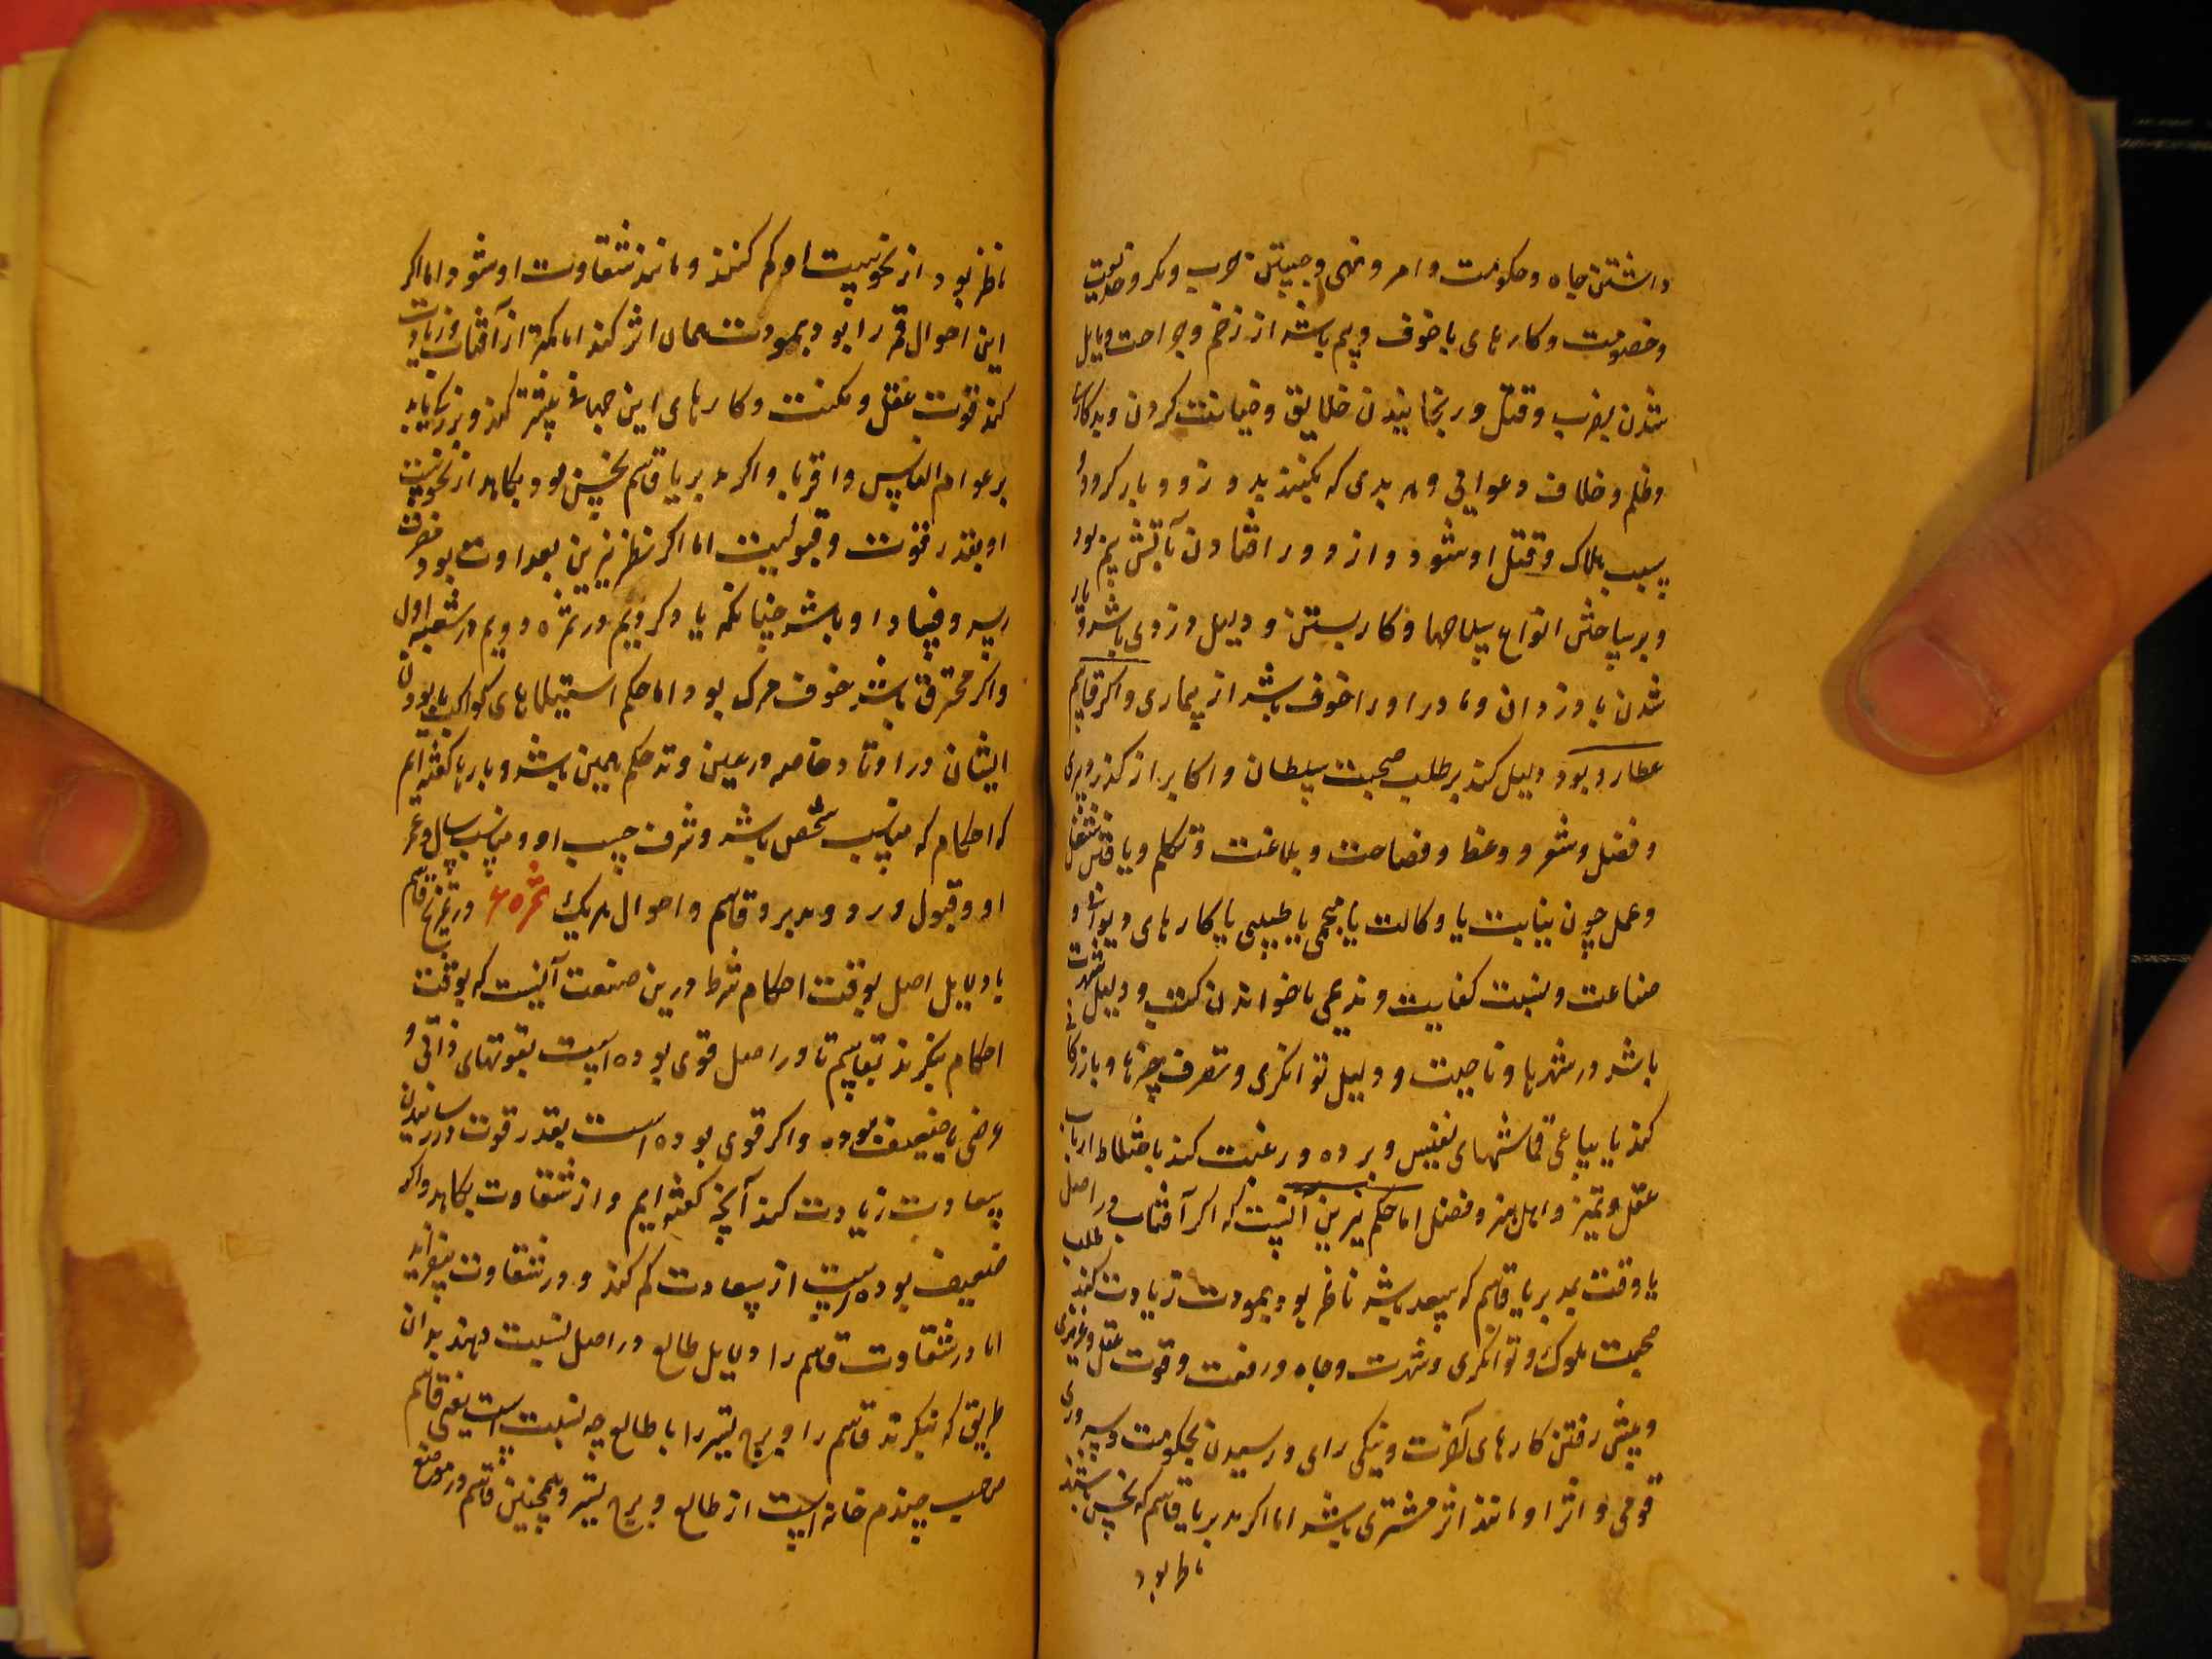 داشتن جاه و حکومت و امر و نهی و جستن حرب و مکر و
و خصومت و کارهای با خوف و بیم باشد از زخم و جراحت و مایل
شدن بضرب و قتل و رنجانیدن خلایق و خیانت کردن و بدکاری
و ظلم و خلاف و هر بدی که بکنند بدو زود باز کردد و
بسبب هلاک و قتل او شود و از دور افتادن بآتش بیم بود
و بر ساختن انواع سلاحها و کار بستن و دلیل دزدی باشد و یار
شدن با دزدان و مادر او را خوف باشد از بیماری و اکر قاسم
عطارد بود دلیل کند بر طلب صحبت سلطان و اکابر از کذر دبیری
و فضل و شعر و وعظ و فصاحت و بلاغت و تکلم و یافتن شغل
و عمل چون نیابت یا وکالت یا منجمی یا طبیبی یا کارهای دیوانی و
صناعت و نسبت کفایت و ندیمی یا خواندن کتب و دلیل شهرت
باشد در شهرها و ناحیت و دلیل توانکری و تصرف چیزها و بازرکانی
کند یا بیاعی قماشهای نفیس و برده و رغبت کند باختلاط ارباب
عقل و تمیز و اهل هنر و فضل اما حکم نیرین آنست که اکر آفتاب در اصل
یا وقت مدبر یا قاسم که سعد باشد ناظر بود بمودت زیادت کند طلب
صحبت ملوک و توانکری و شهرت و جاه و رفعت و قوت عقل و عزیزی
و پیش رفتن کارهای آخرت و نیکی رای و رسیدن بحکومت و سروری
قومی و اثر او مانند اثر مشتری باشد اما اکر مدبر یا قاسم که نحس باشند
ناظر بود
ناظر بود از نحوست او کم کنند و مانند شقاوت او شود و اما اکر
این احوال قمر را بود بمودت همان اثر کند اما کمتر از آفتاب و زیادت
کند قوت عقل و مکنت و کارهای این جهانی بیشتر کند و بزرکی یابد
بر عوام الناس و اقربا و اکر مدبر یا قاسم نحس بود بکاهد از نحوست
او بقدر قوت و قبولیت اما اکر نظر نیرین بعداوت بود مضرت
رسد و فساد او باشد چنانکه یاد کردیم در ثمره دویم در شعبه اول
و اکر محترق باشد خوف مرک بود اما حکم استیلاهای کواکب با بودن
ایشان در اوتاد خاصه در عین وتد حکم همین باشد و بارها کفته ایم
که احکام که مناسب شخص باشد و شرف حسب او و مناسب سال و عمر
او و قبول و رد و مدبر و قاسم و احوال هر یک ثمره ۶ در تمزیج قاسم
با دلایل اصل بوقت احکام شرط درین صنعت آنست که بوقت
احکام بنکرند بقاسم تا در اصل قوی بوده است بقوتهای ذاتی و
عرضی یا ضعیف بوده و اکر قوی بوده است بقدر قوت در رسانیدن
سعادت زیادت کند آنچه کفته ایم و از شقاوت بکاهد و اکر
ضعیف بوده است از سعادت کم کند و در شقاوت بیفزاید
اما در شقاوت قاسم را دلایل طالع در اصل نسبت دهند بدان
طریق که بنکرند قاسم را و برج تسیر را با طالع چه نسبت است یعنی قاسم
صاحب چندم خانه است از طالع و برج تسیر و همچنین قاسم در موضع